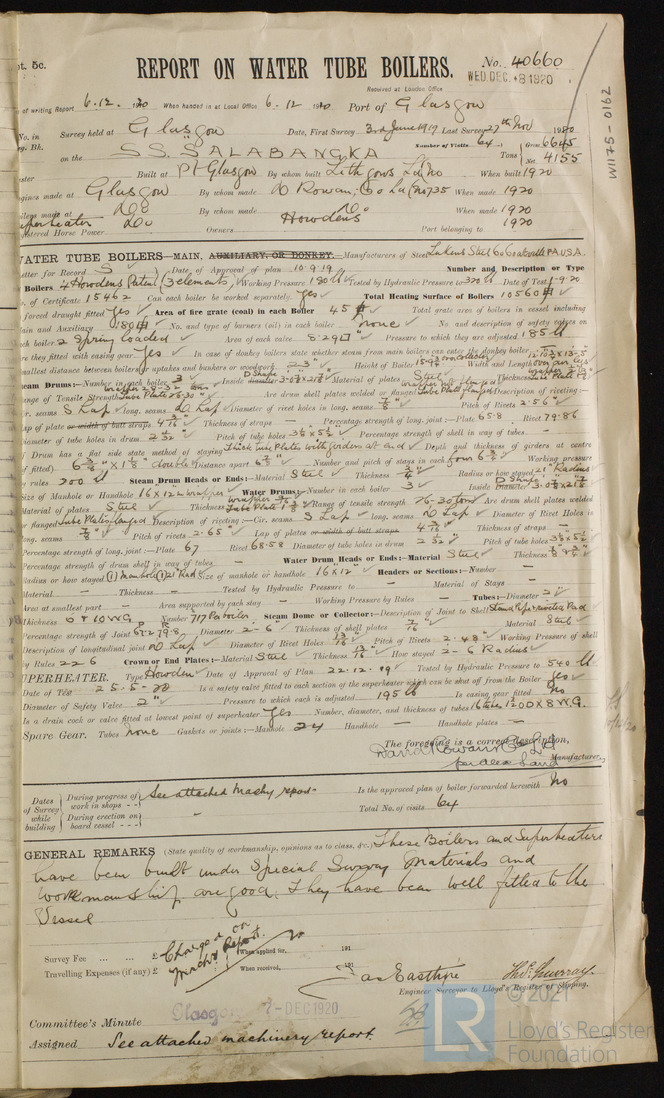 pt. 5c.
REPORT ON WATER TUBE BOILERS. No. 40660
WED. DEC. 8 1920
Received at London Office
of writing Report 6.12. 1920 When handed in at Local Office 6.12 1920 Port of Glasgow
W1175-0162
No. in Survey held at Glasgow Date, First Survey 3rd June 1919 Last Survey 27th Nov 1920
Number of Visits 64
on the S.S. SALABANGKA Tons Gross 6645 Net 4155
Built at Pt Glasgow By whom built Lithgows Ld No When built 1920
Engines made at Glasgow By whom made D Rowan, Co Ld (No 735 When made 1920
Boilers made at Do By whom made Do When made 1920
Superheater Do Howdens 1920
Registered Horse Power Owners Port belonging to
WATER TUBE BOILERS—MAIN, AUXILIARY, OR DONKEY.—Manufacturers of Steel Lukens Steel Co Coatesville PA USA.
Letter for Record S Date of Approval of plan 10.9.19 Number and Description or Type
Boilers 4 Howdens Patent (3 elements) Working Pressure 180 lb Tested by Hydraulic Pressure to 320 lb Date of Test 1-9-20
No. of Certificate 15462 Can each boiler be worked separately. Yes Total Heating Surface of Boilers 10560
forced draught fitted Yes Area of fire grate (coal) in each Boiler 45 Total grate area of boilers in vessel including
Main and Auxiliary 180 No. and type of burners (oil) in each boiler none No. and description of safety valves on
each boiler 2 Spring loaded Area of each valve 8.29 Pressure to which they are adjusted 185 lb
are they fitted with easing gear Yes In case of donkey boilers state whether steam from main boilers can enter the donkey boiler
Smallest distance between boilers or uptakes and bunkers or woodwork 2-3" Height of Boiler Width and Length
Steam Drums:—Number in each boiler 3 Inside diameter Material of plates Steel Thickness
Range of Tensile Strength Are drum shell plates welded or flanged Description of riveting:—
Cir. seams S Lap long. seams D Lap Diameter of rivet holes in long. seams 7/8" Pitch of Rivets 2.56"
Lap of plates or width of butt straps 4 7/16 Thickness of straps — Percentage strength of long. joint:—Plate 65.8 Rivet 79.86
Diameter of tube holes in drum 2 1/32" Pitch of tube holes 3 1/2 x 5 1/2 Percentage strength of shell in way of tubes. —
If Drum has a flat side state method of staying Thick tube Plates with girders at end Depth and thickness of girders at centre
(if fitted). Distance apart Number and pitch of stays in each four Working pressure
by rules 200 lb Steam Drum Heads or Ends:—Material Steel Thickness Radius or how stayed 21" Radius
Size of Manhole or Handhole 16 x 12 Water Drums:—Number in each boiler 3 Inside Diameter
Material of plates Steel Thickness Range of tensile strength 26-30 tons Are drum shell plates welded
or flanged Tube Plates flanged Description of riveting:—Cir. seams S Lap long. seams D Lap Diameter of Rivet Holes in
long. seams 7/8" Pitch of rivets 2.65" Lap of plates or width of butt straps 4 7/16 Thickness of straps —
Percentage strength of long. joint:—Plate 67 Rivet 68.58 Diameter of tube holes in drum 2 1/32" Pitch of tube holes 3 1/2 x 5 1/2
Percentage strength of drum shell in way of tubes — Water Drum Heads or Ends:—Material Steel Thickness
Radius or how stayed Size of manhole or handhole 16 x 12" Headers or Sections:—Number —
Material — Thickness — Tested by Hydraulic Pressure to — Material of Stays —
Area at smallest part — Area supported by each stay — Working Pressure by Rules — Tubes:—Diameter 2"
Thickness 8 & 10 WG. Number 717 Per boiler Steam Dome or Collector:—Description of Joint to Shell
Percentage strength of Joint Diameter 2-6 Thickness of shell plates 7/16 Material Steel
Description of longitudinal joint D Lap Diameter of Rivet Holes 13/16 Pitch of Rivets 2.48" Working Pressure of shell
by Rules 226 Crown or End Plates:—Material Steel Thickness 13/16 How stayed 2-6 Radius
SUPERHEATER. Type Howden Date of Approval of Plan 22.12.19 Tested by Hydraulic Pressure to 540 lb
Date of Test 25.5.20 Is a safety valve fitted to each section of the superheater which can be shut off from the Boiler Yes
Diameter of Safety Valve 2" Pressure to which each is adjusted 195 lb Is easing gear fitted Yes
Is a drain cock or valve fitted at lowest point of superheater Yes Number, diameter, and thickness of tubes
Spare Gear. Tubes none Gaskets or joints:—Manhole 24 Handhole — Handhole plates —
The foregoing is a correct description,
David Rowan & Co Ld
Manufacturer.
Dates of Survey while building
During progress of work in shops - - See attached Machy report Is the approved plan of boiler forwarded herewith No
During erection on board vessel - - - Total No. of visits 64
GENERAL REMARKS (State quality of workmanship, opinions as to class, &c. These Boilers and Superheaters
have been built under Special Survey Materials and
Workmanship are good. They have been well fitted to the
Vessel
Survey Fee ... ... £ Charged on Machy Report. When applied for, 191
Travelling Expenses (if any) £ When received, 191
Thos. Murray.
Engineer Surveyor to Lloyd's Register of Shipping.
Committee's Minute Glasgow 7-DEC 1920
Assigned See attached machinery report.
LR
© 2021
Lloyd's Register
Foundation